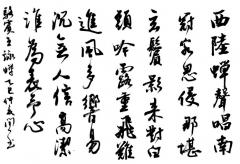 西陸蟬聲唱南
冠客思侵那堪
玄鬢影來對白
頭吟露重飛難
進風多響易
沉無人信高潔
誰為表予心
駱賓王詠蟬